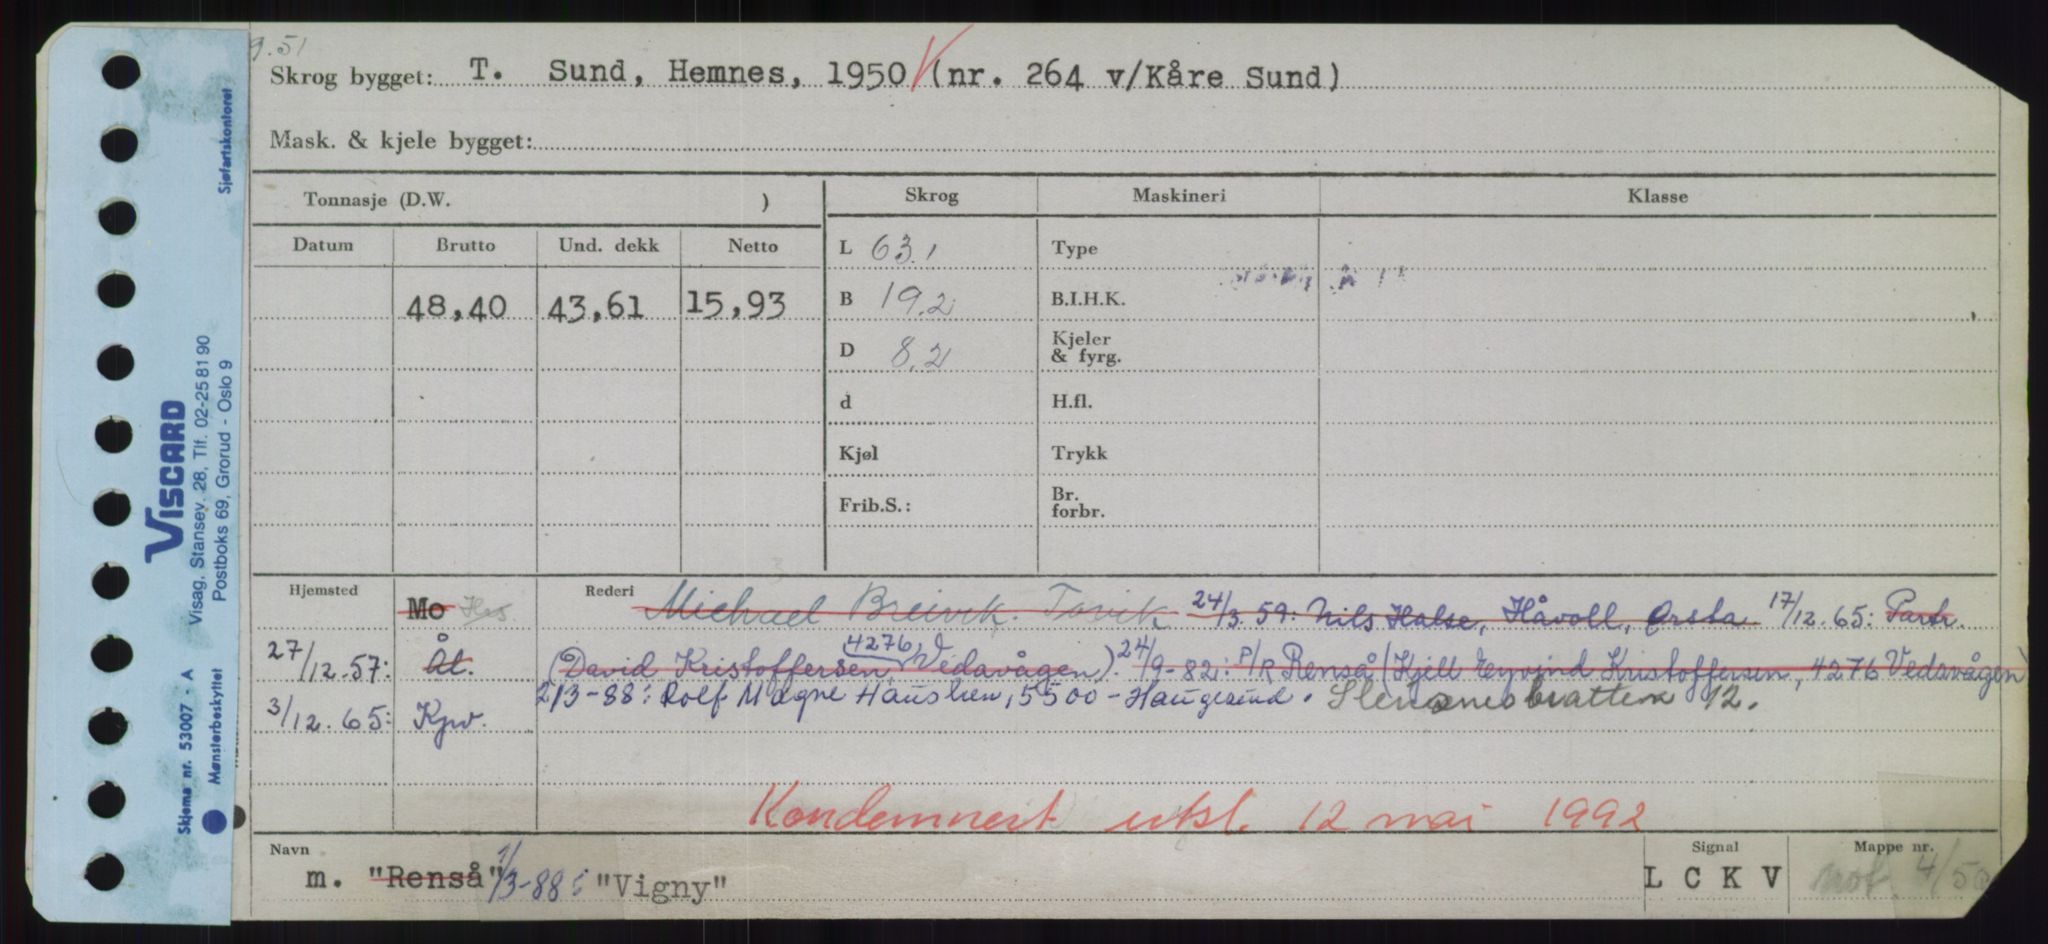 9.51
Skrog bygget: T. Sund, Hemnes, 1950 (nr. 264 v/Kåre Sund)
Mask. & kjele bygget:
Tonnasje (D.W. )
Skrog Maskineri Klasse
Datum Brutto Und. dekk Netto
48,40 43,61 15,93
L 63.1
B 19.2
D 8.2
d
Kjøl
Frib.S.:
Type
B.I.H.K.
Kjeler
& fyrg.
H.fl.
Trykk
Br.
forbr.
Hjemsted Mo
27/12-57: Ål.
3/12.65: Kpv.
Rederi Michael Breivik, Torvik 24/3.59: Nils Halse, Håvoll, Ørsta 17/12.65: Partr.
(David Kristoffersen, 4276 Vedavågen). 24/9-82: P/R Renså (Kjell Eyvind Kristoffersen, 4276 Vedavågen)
2/3-88: Rolf Magne Hausken, 5500 - Haugesund. 12.
Kondemnert utsl. 12 mai 1992
Navn
m. "Renså" 1/3-88: "Vigny"
Signal
LCKV
Mappe nr.
not. 4/50
Sjøfartskontoret
VISCARD
Visag, Stansev. 28, Tlf. 02-25 81 90
Postboks 69, Grorud - Oslo 9
Skjema nr. 53007 - A
Mønsterbeskyttet